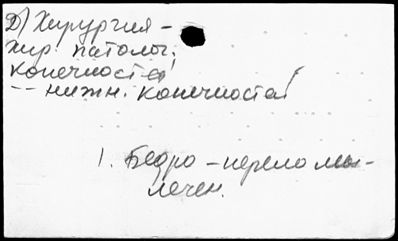 Д) Хирургия -
хир. патолог.
конечностей
-- нижн. конечностей
1. Бедро - переломы -
лечен.